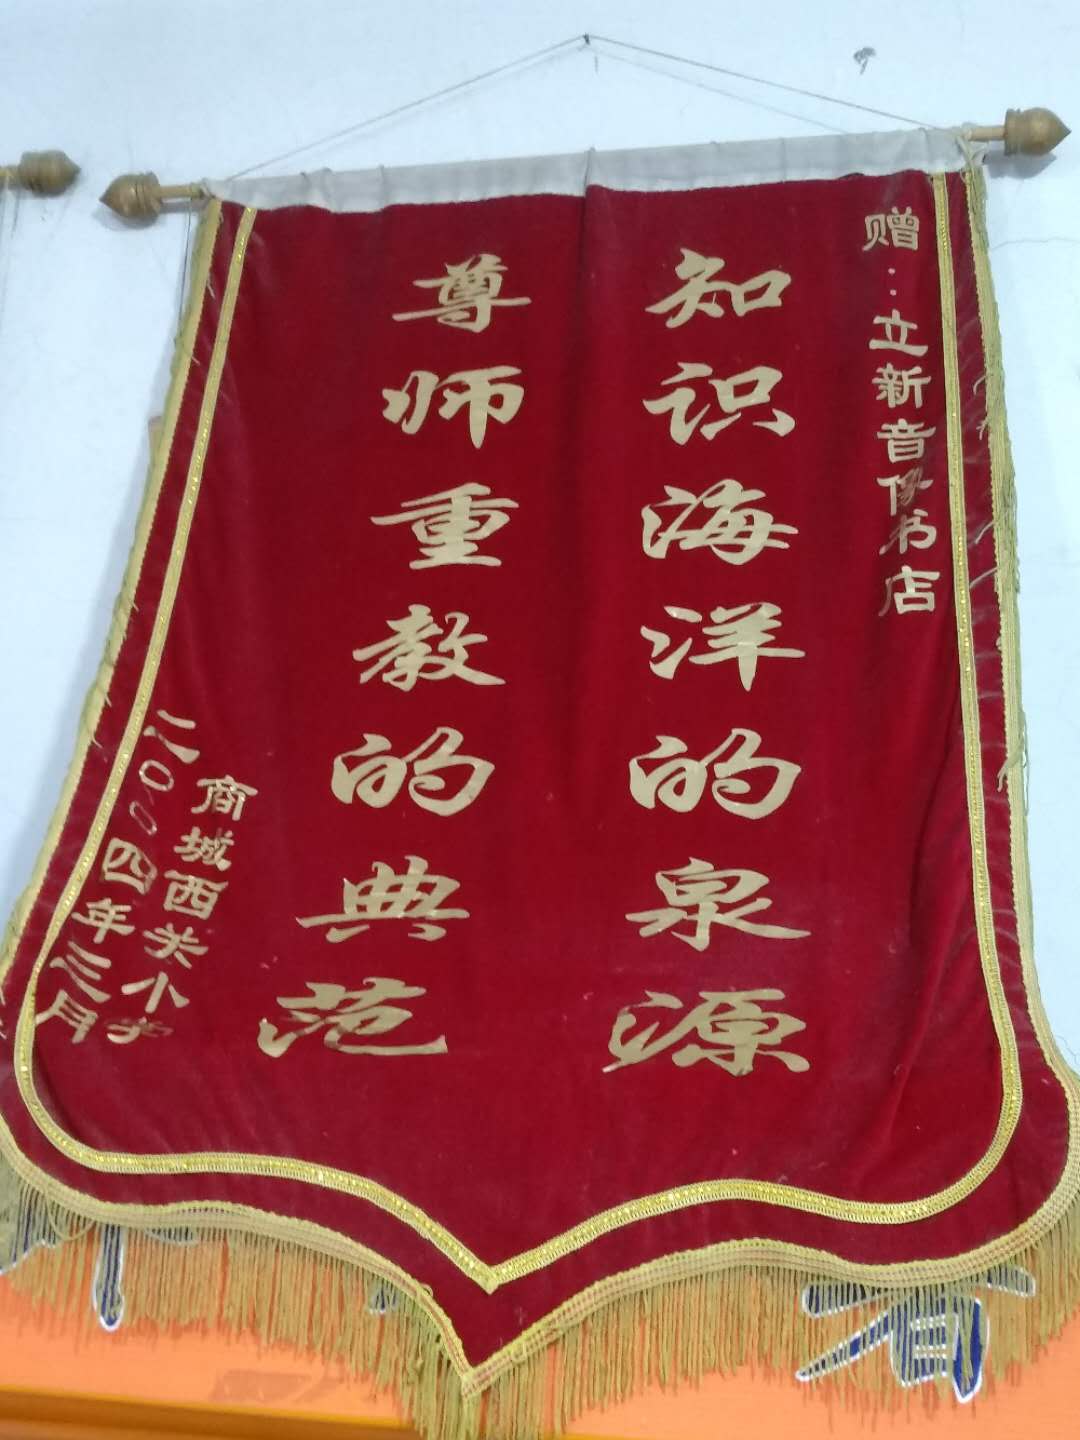 赠：立新音像书店
知识海洋的泉源
尊师重教的典范
商城西关小学
二〇〇四年三月